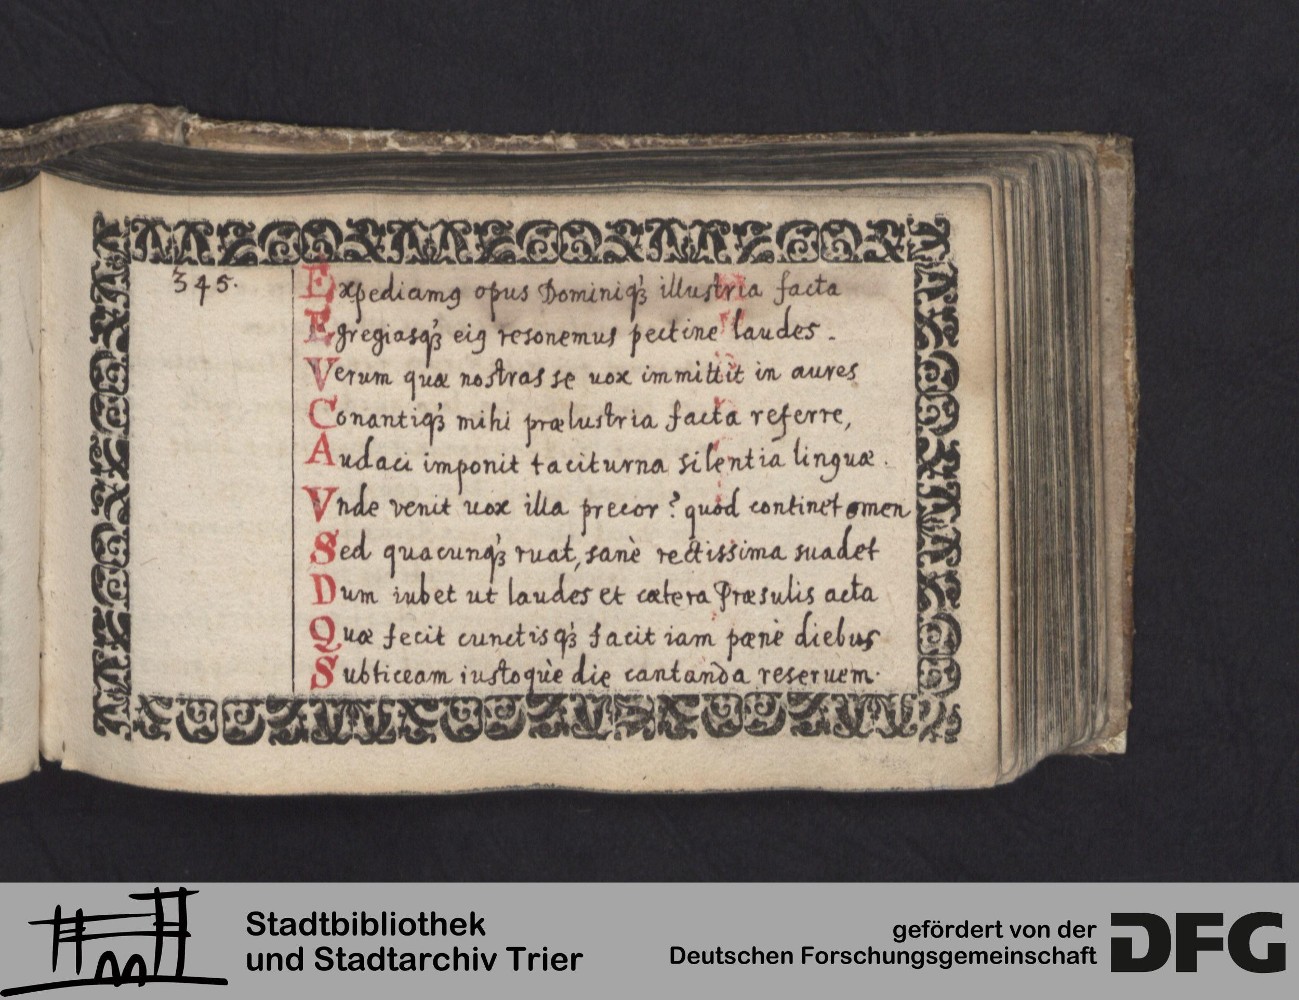 345.
Expediamꝯ opus Dominiqꝫ illustria facta
Egregiasqꝫ eiꝯ resonemus pectine laudes.
Verum quæ nostras se uox immittit in aures
Conantiqꝫ mihi prælustria facta referre,
Audaci imponit taciturna silentia linguæ.
Vnde venit uox illa precor? quod continet omen
Sed quacunqꝫ ruat, sanè rectissima suadet
Dum iubet ut laudes et cætera Præsulis acta
Quæ fecit cunctisqꝫ facit iam pænè diebus
Subticeam iustoquè die cantanda reseruem.
Stadtbibliothek
und Stadtarchiv Trier
gefördert von der
Deutschen Forschungsgemeinschaft
DFG